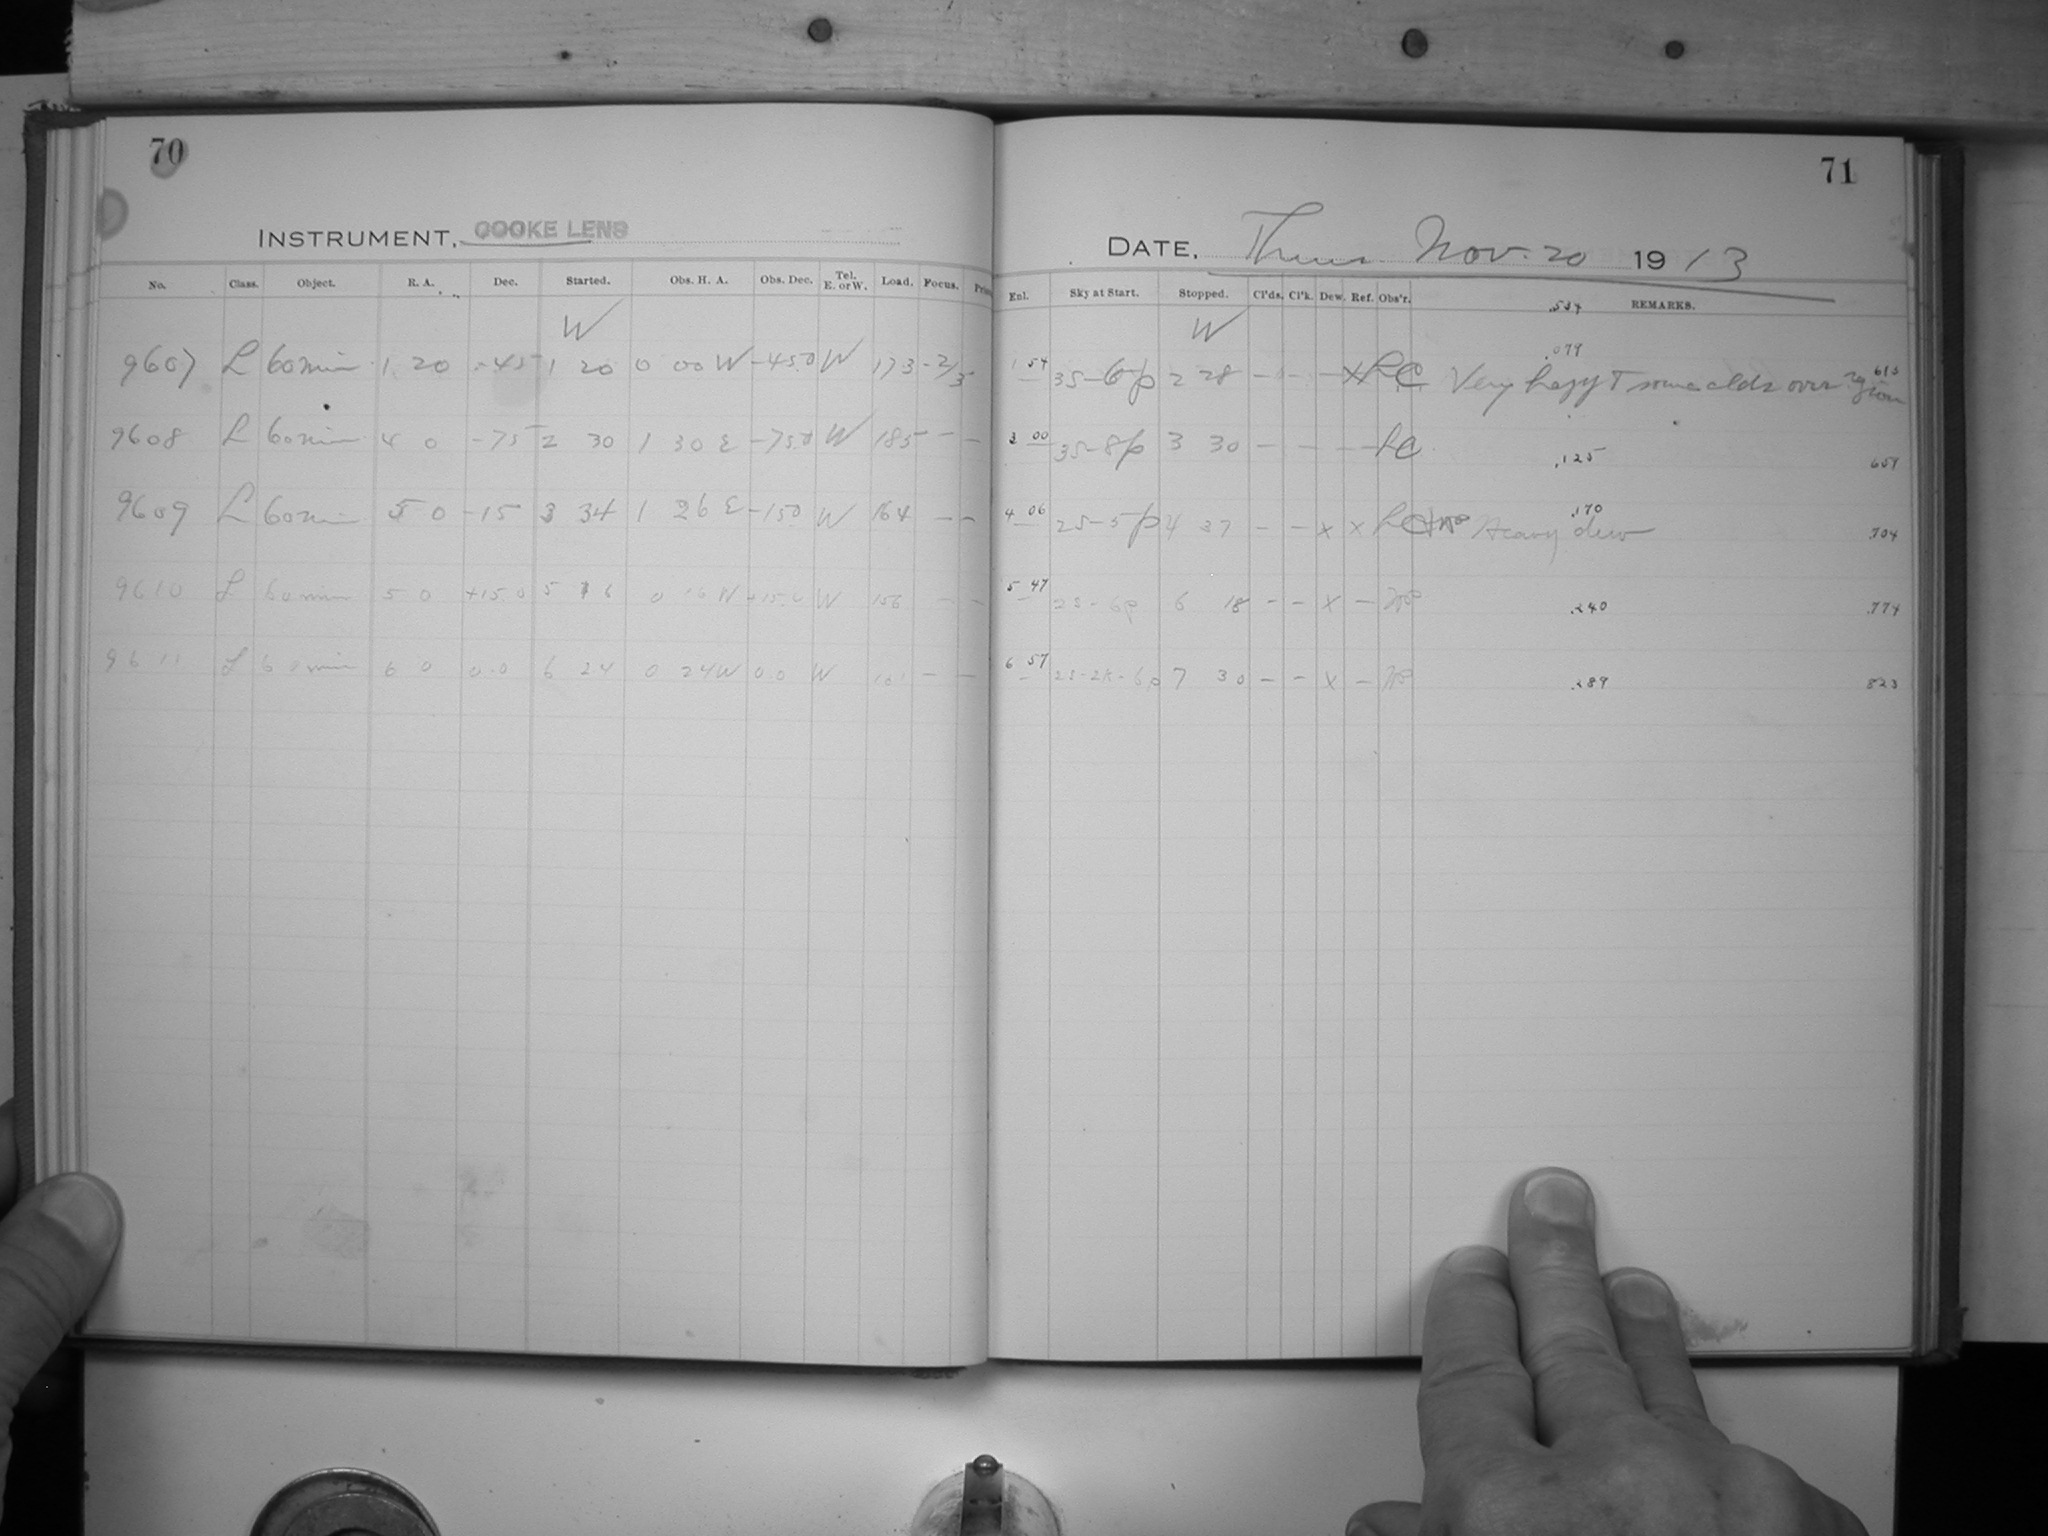 70
INSTRUMENT, COOKE LENS
No. Class. Object. R. A. Dec. Started. Obs. H. A. Obs. Dec. Tel. E. or W. Load. Focus.
W
9607 L 60 min 1 20 -45 1 20 0 00 W -45.0 W 173 -2/3
9608 L 60 min 4 0 -75 2 30 1 30 E -75.0 W 185 - -
9609 L 60 min 5 0 -15 3 34 1 26 E -15.0 W 164 - -
9610 L 60 min 5 0 +15.0 5 16 0 16 W +15.0 W 156 - -
9611 L 60 min 6 0 0.0 6 24 0 24 W 0.0 W - -
71
DATE, Thurs Nov. 20 1913
Enl. Sky at Start. Stopped. Cl'ds. Cl'k. Dew. Ref. Obs'r. REMARKS.
.534
W
.079
1 54 3S-6p 2 28 - - - X LC Very hazy + some clds over region 613
3 00 3S-8p 3 30 - - - - LC .125 659
4 06 2S-5p 4 37 - - x x LC Heavy dew .170 .704
5 47 2S-6p 6 18 - - x - .240 .774
6 57 2S-2K-6p 7 30 - - x - .289 823